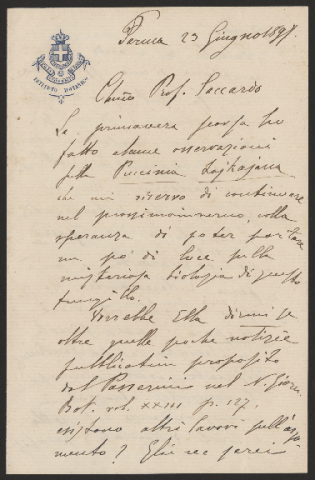 23 Giugno 1897.
Chmo Prof. Saccardo
La primavera scorsa ho
fatto alcune osservazioni
sulla Puccinia Lojkajana
che mi riservo di continuare
nel prossimo inverno, colla
speranza di poter portare
un po' di luce sulla
misteriosa biologia di questo
funghillo.
Vorrebbe Ella dirmi se
oltre quelle poche notizie
pubblicate in proposito
dal Passerini nel N. Giorn.
Bot. vol. XXIII p. 127,
esistono altri lavori sull'argo-
mento? Gliene sarei